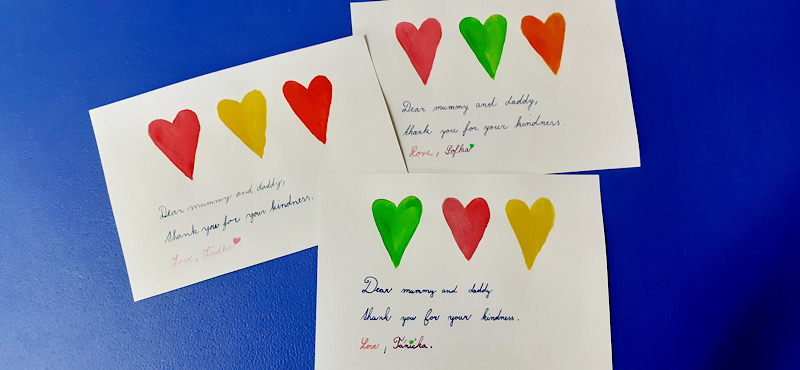 Dear mummy and daddy,
thank you for your kindness.
Love, Ludka
Dear mummy and daddy,
thank you for your kindness.
Love, Sofka
Dear mummy and daddy
thank you for your kindness.
Love, Tánička.